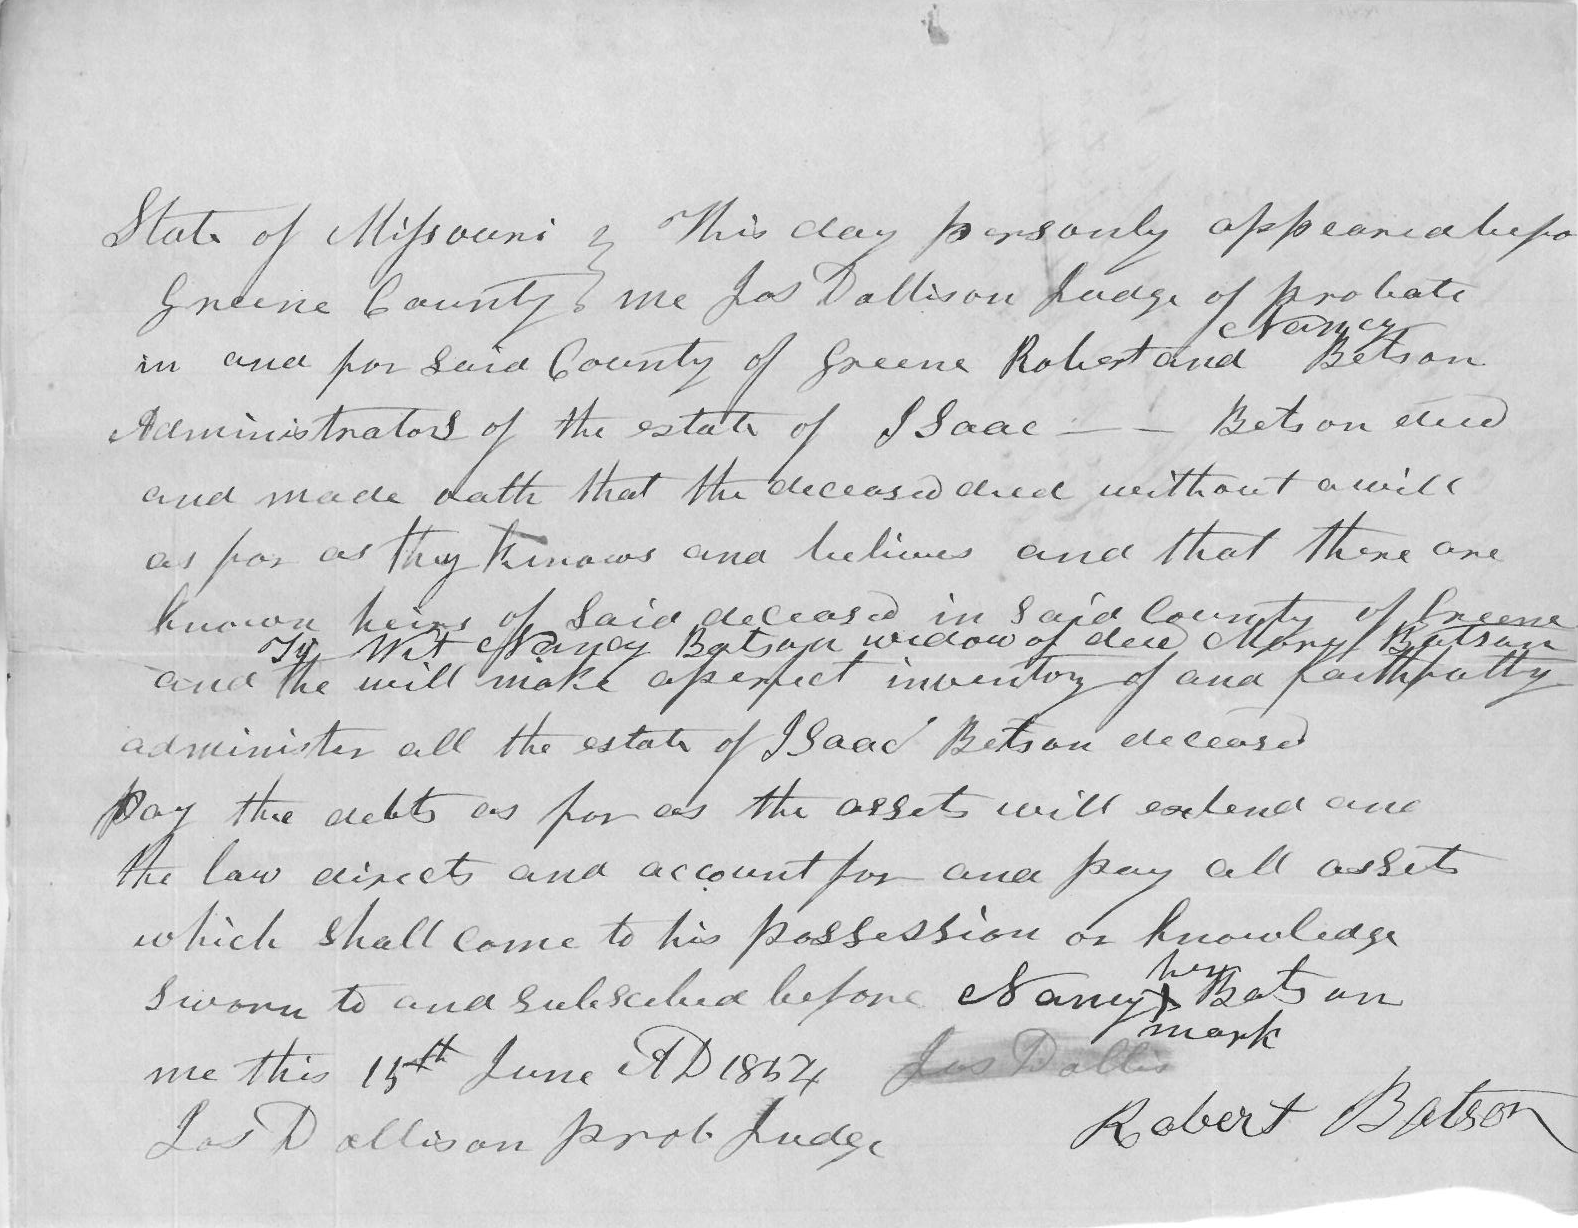 State of Missouri } This day personly appeared befo
Greene County } me Jos D allison Judge of probate
Nancy
in and for said County of Greene Robert and Betson
Administrators of the estate of ISaac — — Betson decd
and made oath that the deceased died without a will
as far as they knows and believes and that there are
known heirs of said deceased in said County of Greene
To Wit Nancy Batson widow of decd Mary Batson
and the will make a perfect inventory of and faithfully
administer all the estate of ISaac Betson deceased
pay the debts as far as the assets will extend and
the law directs and account for and pay all assets
which shall come to his possession or knowledge
her
sworn to and subscribed before Nancy X Batson
mark
me this 15th June AD 1854 Jos D allis
Jos D allison prob Judge Robert Batson